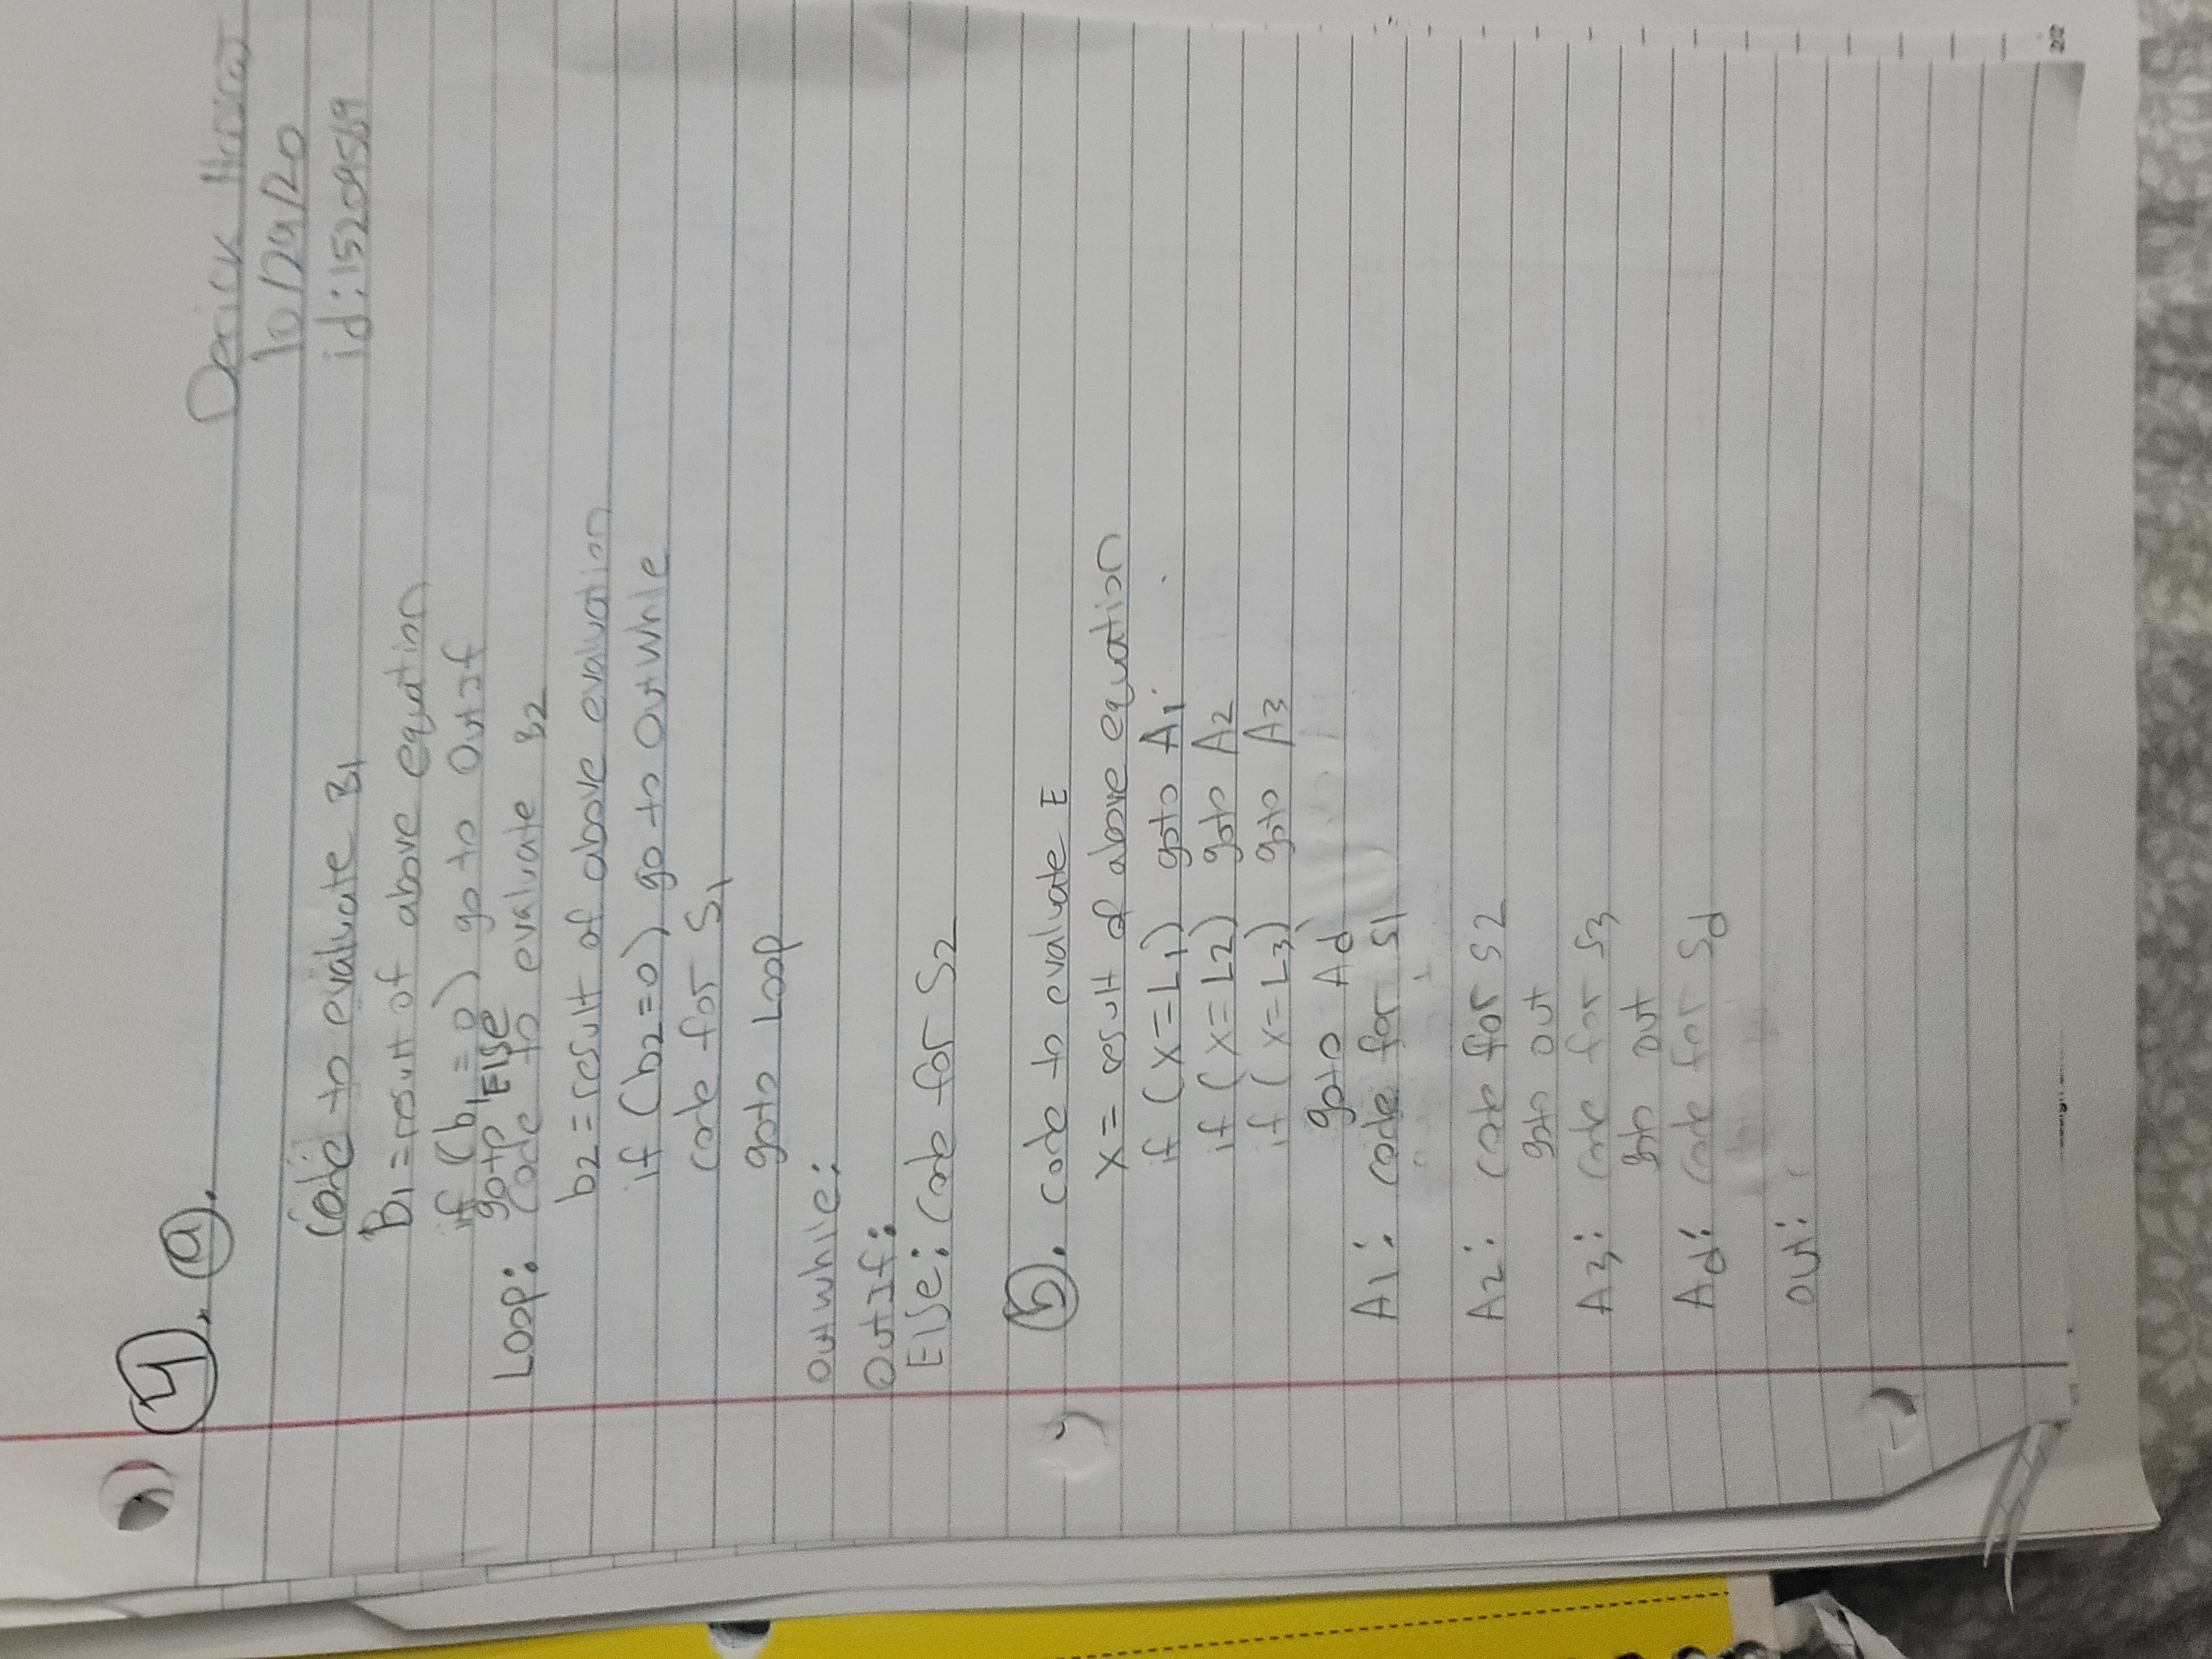 4. a.
Derick
10/29/20
id:15209569
Code to evaluate B1
B1=result of above equation
if (b1=0) go to OutIf
goto Else
Loop: code to evaluate B2
b2=result of above evaluation
if (b2=0) go to OutWhile
code for S1
goto Loop
Outwhile:
OutIf:
Else: code for S2
b. code to evaluate E
X= result of above equation
if (X=L1) goto A1
if (X=L2) goto A2
if (X=L3) goto A3
goto Ad
A1: code for S1
A2: code for S2
goto out
A3: code for S3
goto out
Ad: code for Sd
out: